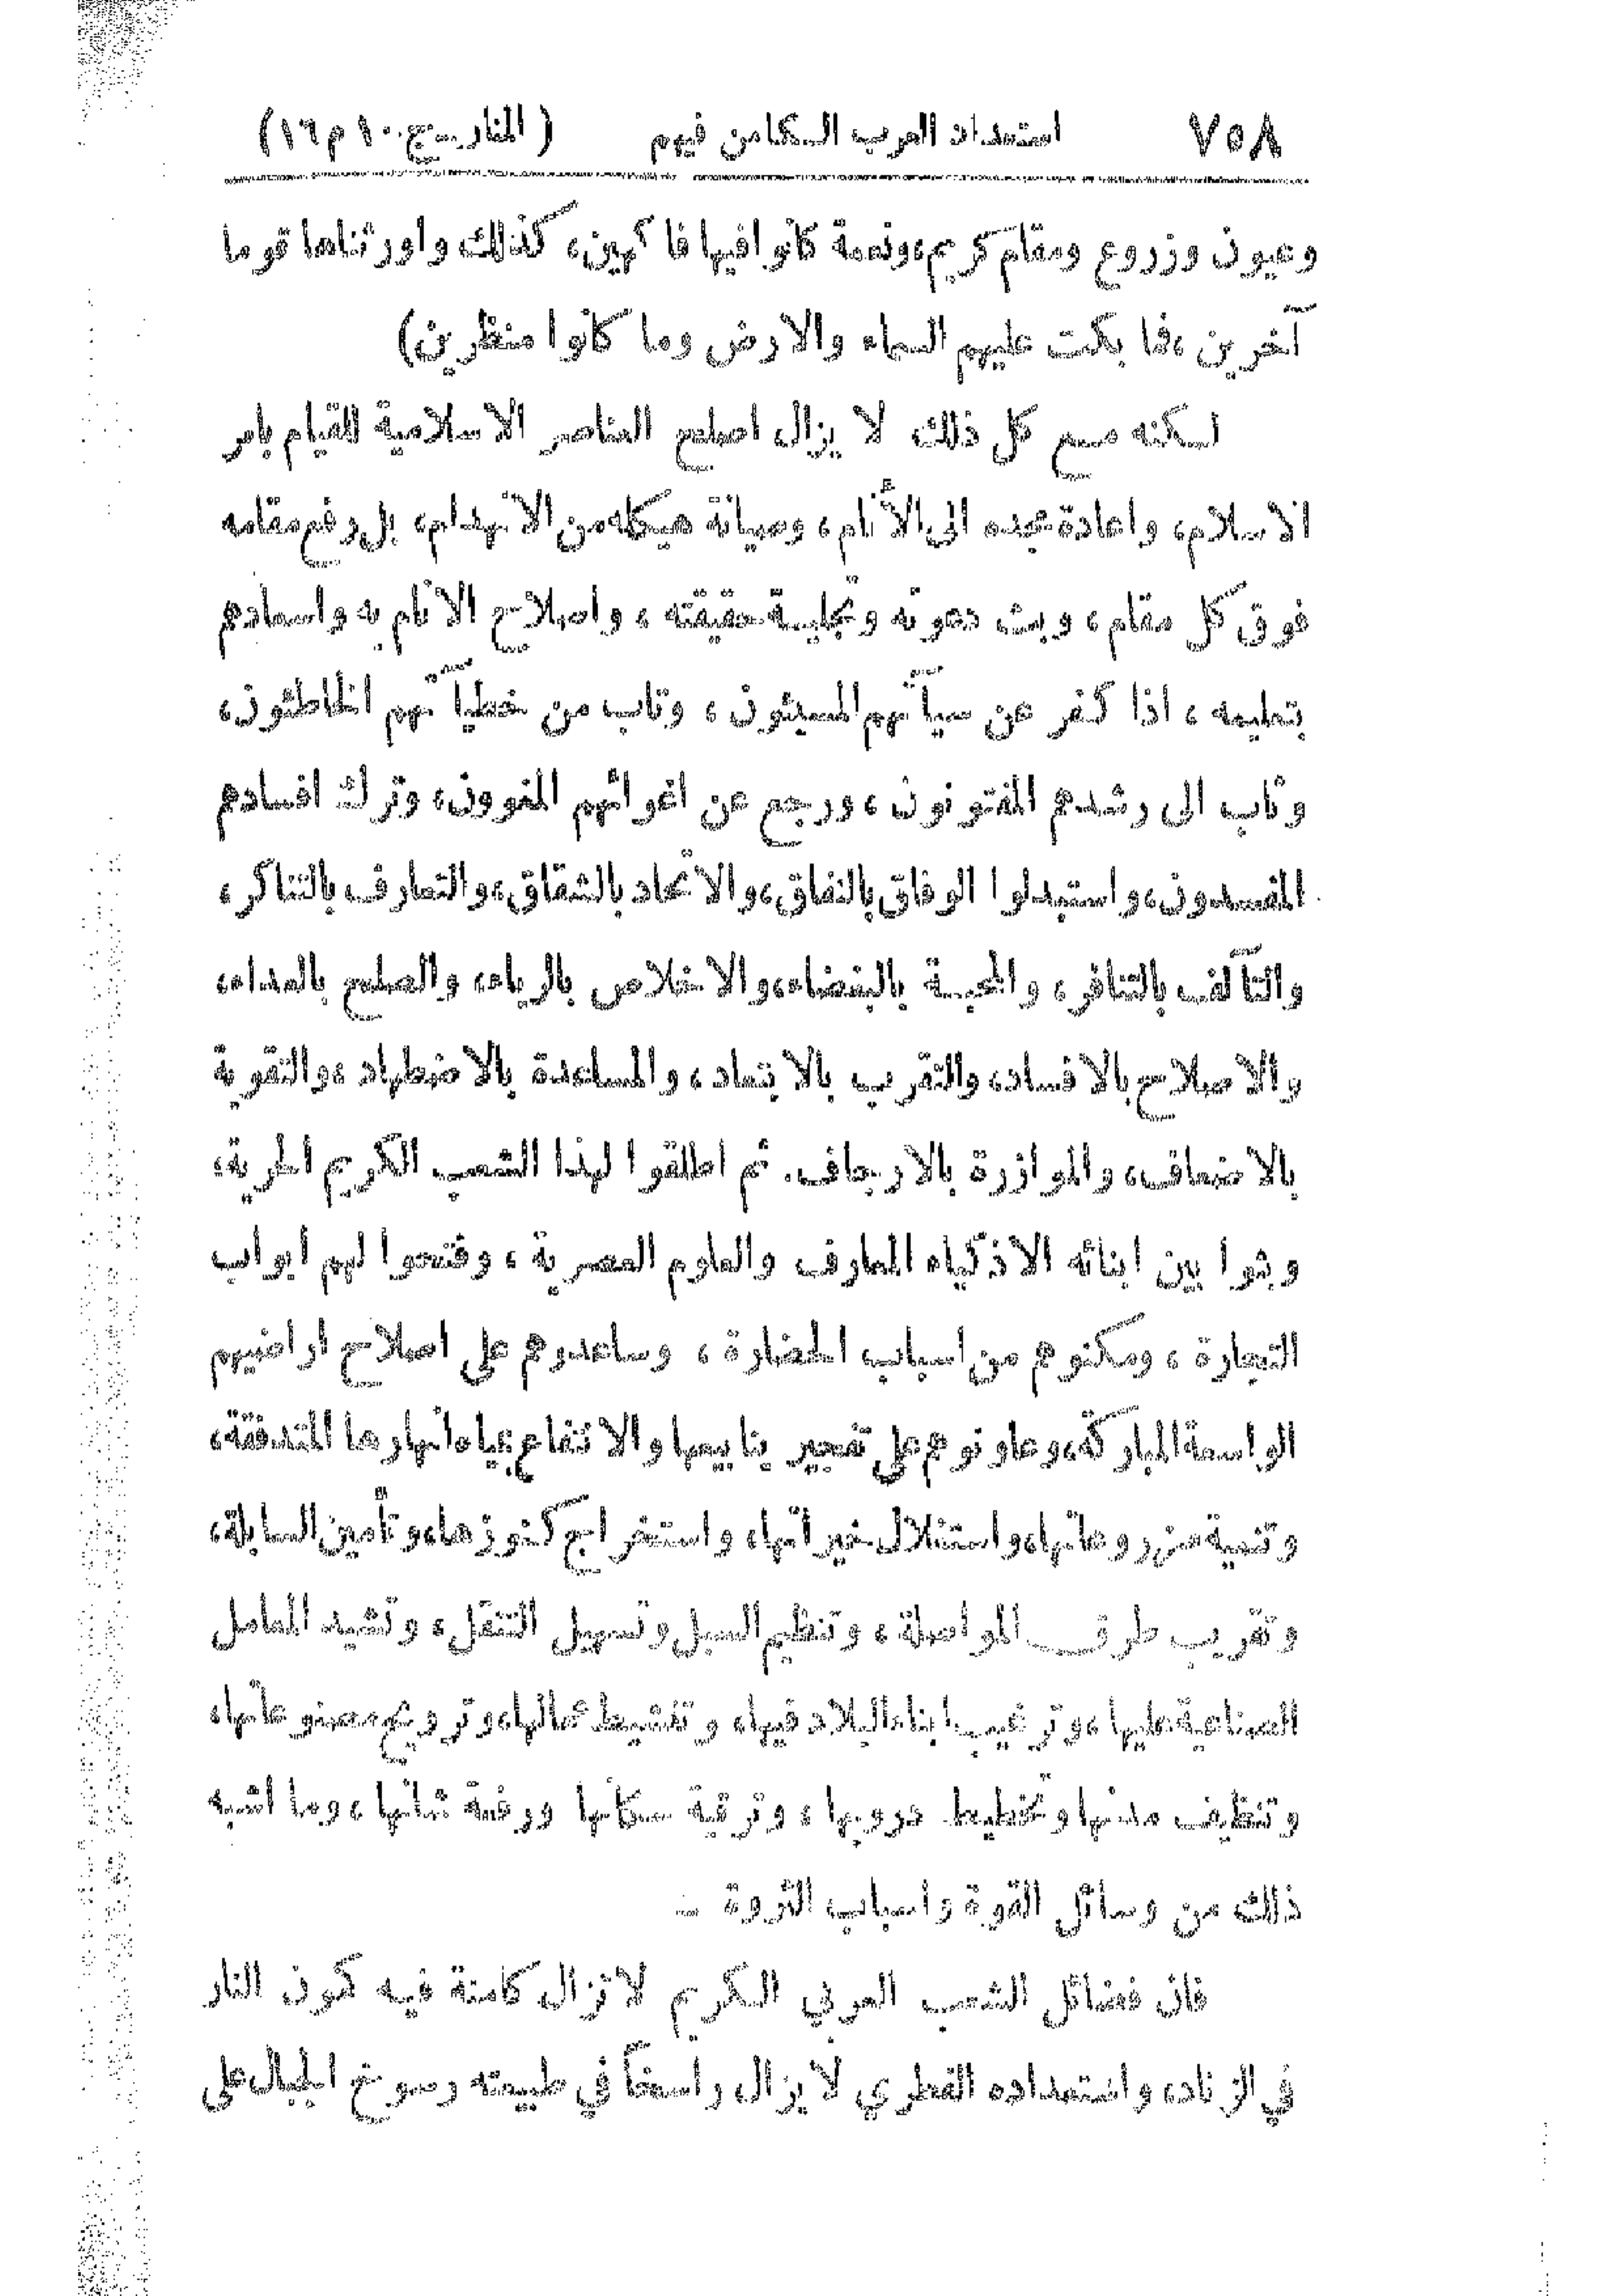 ٧٥٨ استعداد العرب الكامن فيهم (المنار ـ ج ١٠ م ١٦)
وعيون وزروع ومقام كريم، ونعمة كانوا فيها فاكهين، كذلك واورثناها قوما
آخرين ، فما بكت عليهم السماء والارض وما كانوا منظرين)
لكنه مع كل ذلك لا يزال اصلح العناصر الاسلامية للقيام بامر
الاسلام، واعادة مجده الى الأنام، وصيانة هيكله من الانهدام، بل رفع مقامه
فوق كل مقام، وبث دعوته وتجلية حقيقته ، واصلاح الانام به واسعادهم
بتعليمه ، اذا كفر عن سيآتهم المسيئون ، وتاب من خطيآتهم الخاطئون،
وثاب الى رشدهم المفتونون ، ورجع عن اغوائهم المغوون، وترك افسادهم
المفسدون، واستبدلوا الوفاق بالنفاق، والاتحاد بالشقاق، والتعارف بالتناكر،
والتآلف بالتنافر، والمحبة بالبغضاء، والاخلاص بالرياء، والصلح بالعداء،
والاصلاح بالافساد، والتقرب بالابتعاد، والمساعدة بالاضطهاد ، والتقوية
بالاضعاف، والموازرة بالارجاف. ثم اطلقوا لهذا الشعب الكريم الحرية،
وبثوا بين ابنائه الاذكياء المعارف والعلوم العصرية ، وفتحوا لهم ابواب
التجارة ، ومكنوهم من اسباب الحضارة ، وساعدوهم على اصلاح اراضيهم
الواسعة المباركة، وعاونوهم على تفجير ينابيعها والانتفاع بمياه انهارها المتدفقة،
وتنمية مزروعاتها، واستغلال خيراتها، واستخراج كنوزها، وتأمين السابلة،
وتقريب طرق المواصلة ، وتنظيم السبل وتسهيل التنقل، وتشيد المعامل
الصناعية عليها ، وترغيب ابناء البلاد فيها، وتنشيط عمالها، وترويج مصنوعاتها،
وتنظيف مدنها وتخطيط دروبها ، وترقية سكانها ورفعة شانها ، وما اشبه
ذلك من وسائل القوة واسباب الثروة ـ
فان فضائل الشعب العربي الكريم لا تزال كامنة فيه كمون النار
في الزناد، واستعداده الفطري لا يزال راسخاً في طبيعته رسوخ الجبال على